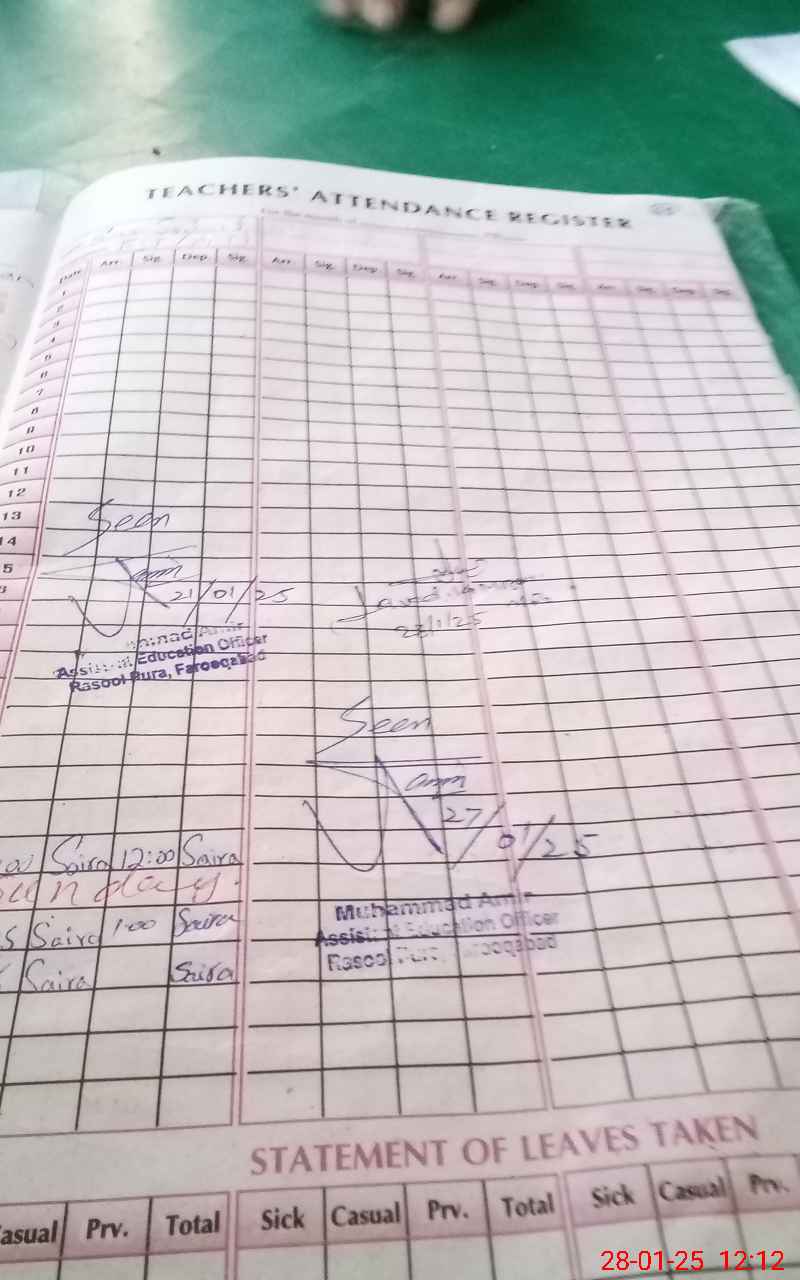 TEACHERS' ATTENDANCE REGISTER
For the Month of
Date Arr. Sig. Dep. Sig. Arr. Sig. Dep. Sig. Arr. Sig. Dep. Sig. Arr. Sig. Dep. Sig.
1
2
3
4
5
6
7
8
9
10
11
12
13
14
5
Seen
amir
21/01/25
Amir
Assistant Education Officer
Rasool Pura, Farooqabad
Javed
23/1/25
Seen
amir
27/01/25
Muhammad Amir
Assistant Education Officer
Rasool Pura, Farooqabad
Saira 12:00 Saira
Sunday
Saira 1:00 Saira
Saira Saira
STATEMENT OF LEAVES TAKEN
Casual Prv. Total Sick Casual Prv. Total Sick Casual Prv.
28-01-25 12:12